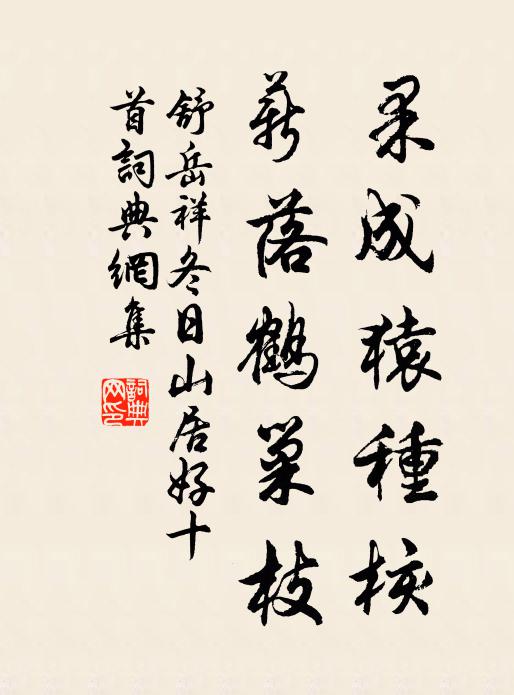 果成猿種核
薪落鶴巢枝
舒岳祥冬日山居好十
首詞典網集
詞典
网印